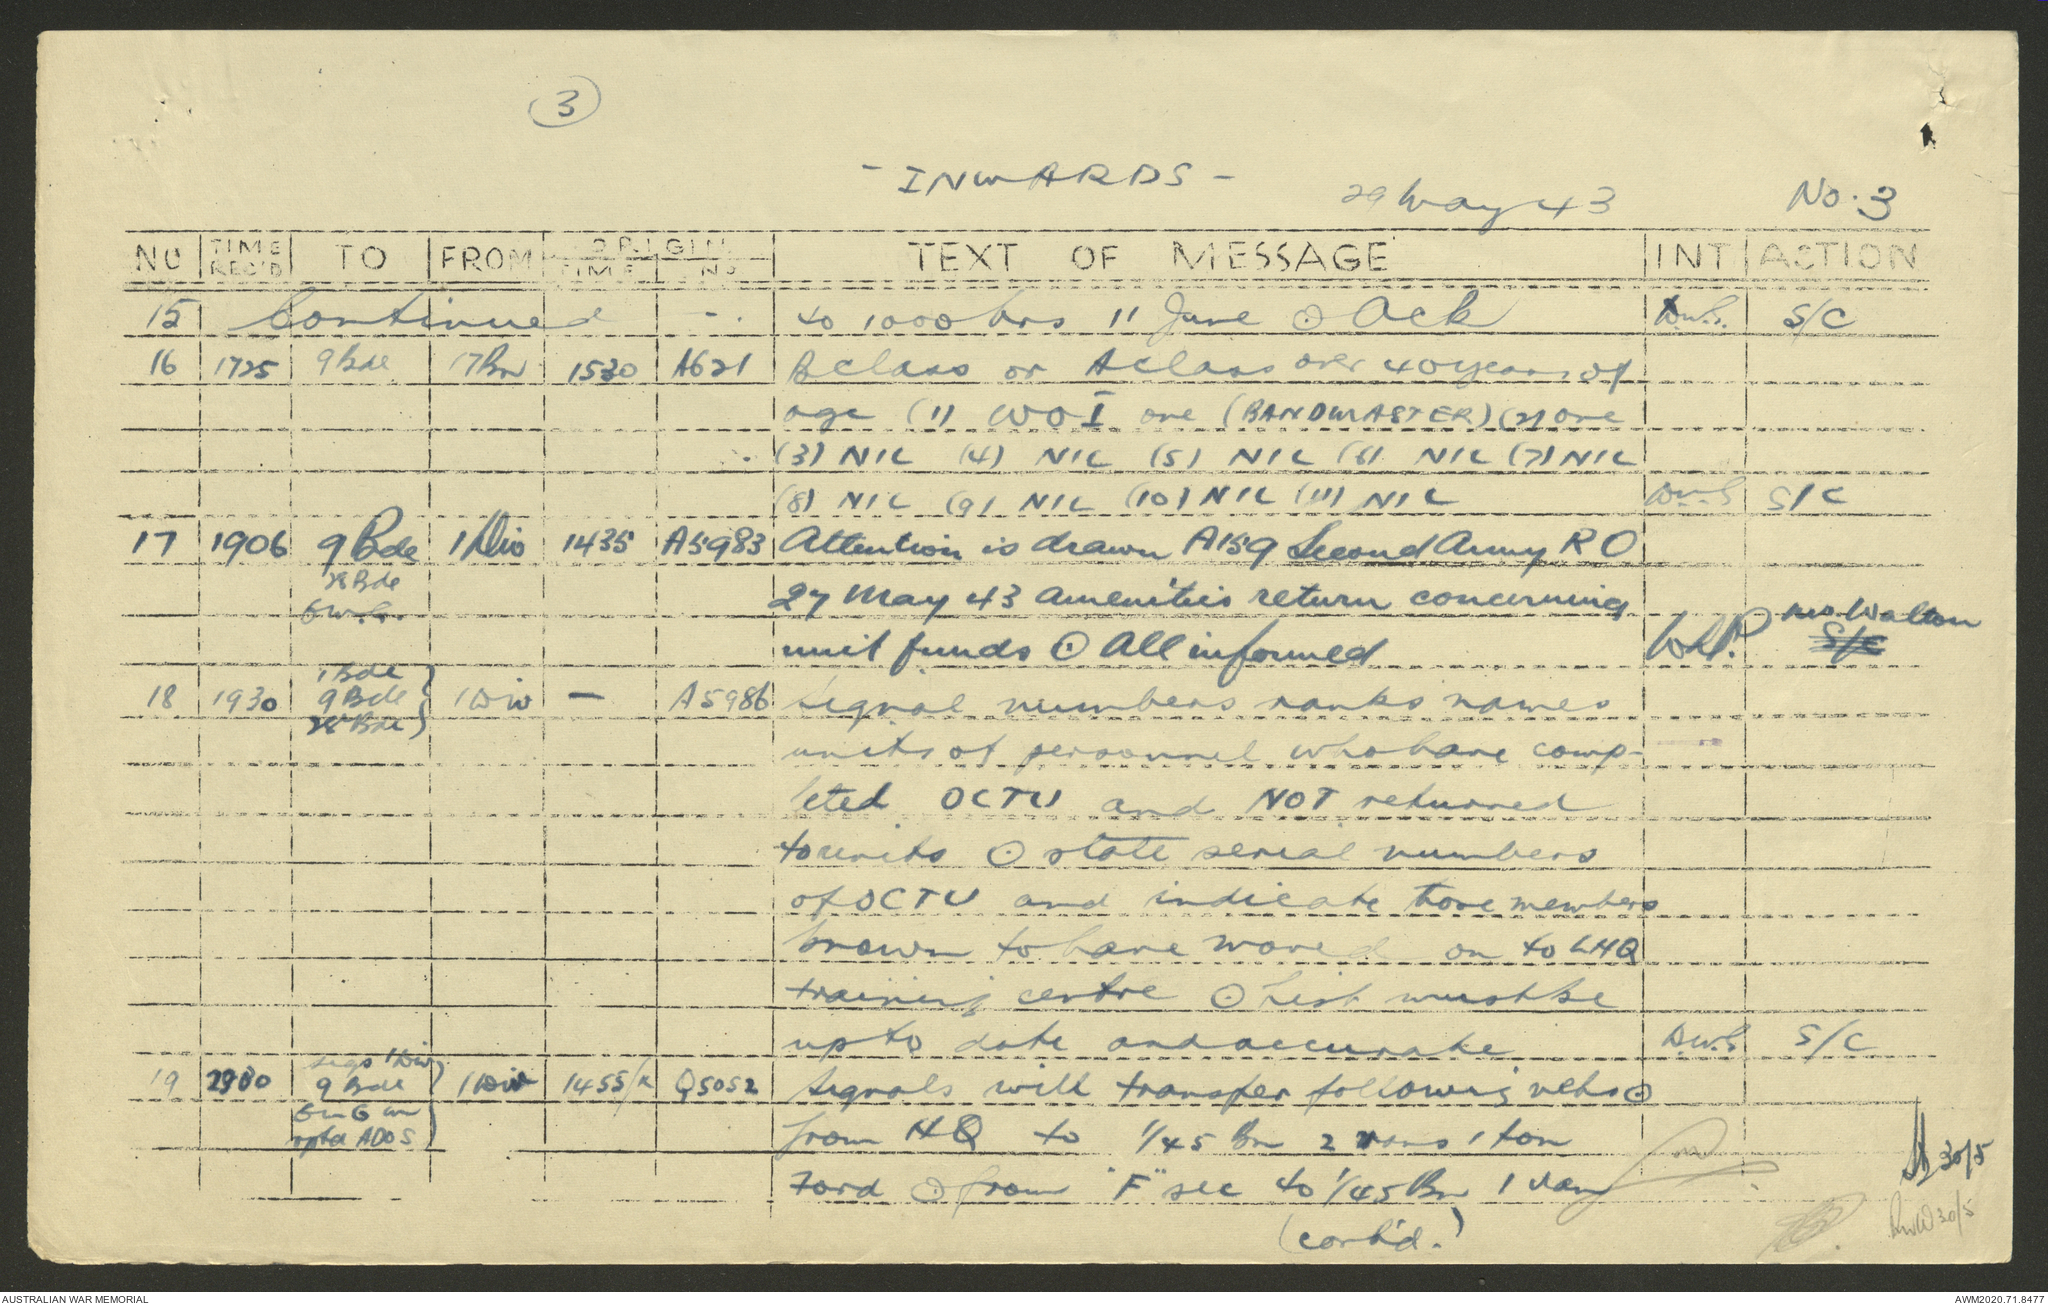 3
- INWARDS -
29 May 43
No. 3
NO TIME REC'D TO FROM ORIGIN TIME NO TEXT OF MESSAGE INT ACTION
15 Continued - . to 1000 hrs 11 June ⊙ Ack D.W.S. S/C
16 1725 9 Bde 17 Bn 1530 A621 B class or A class over 40 years of
age (1) WO I one (BANDMASTER) (2) one
(3) NIL (4) NIL (5) NIL (6) NIL (7) NIL
(8) NIL (9) NIL (10) NIL (11) NIL D.W.S S/C
17 1906 9 Bde 1 Div 1435 A5983 Attention is drawn A159 Second Army RO
28 Bde
27 May 43 amenities return concerning
unit funds ⊙ All informed Walton
S/C
1 Bde
18 1930 9 Bde 1 Div - A5986 Signal numbers ranks names
28 Bde
units of personnel who have comp-
leted OCTU and NOT returned
to units ⊙ state serial numbers
of OCTU and indicate those members
known to have moved on to LHQ
training centre ⊙ List must be
up to date and accurate D.W.S S/C
Sigs 1 Div
19 9 Bde 1 Div 1455/K Q5052 Signals will transfer following vehs ⊙
from HQ to 1/45 Bn 2 vans 1 ton
rptd ADOS
Ford ⊙ from "F" sec to 1/45 Bn 1 van
(cont'd.)
30/5
30/5
AUSTRALIAN WAR MEMORIAL
AWM2020.71.8477